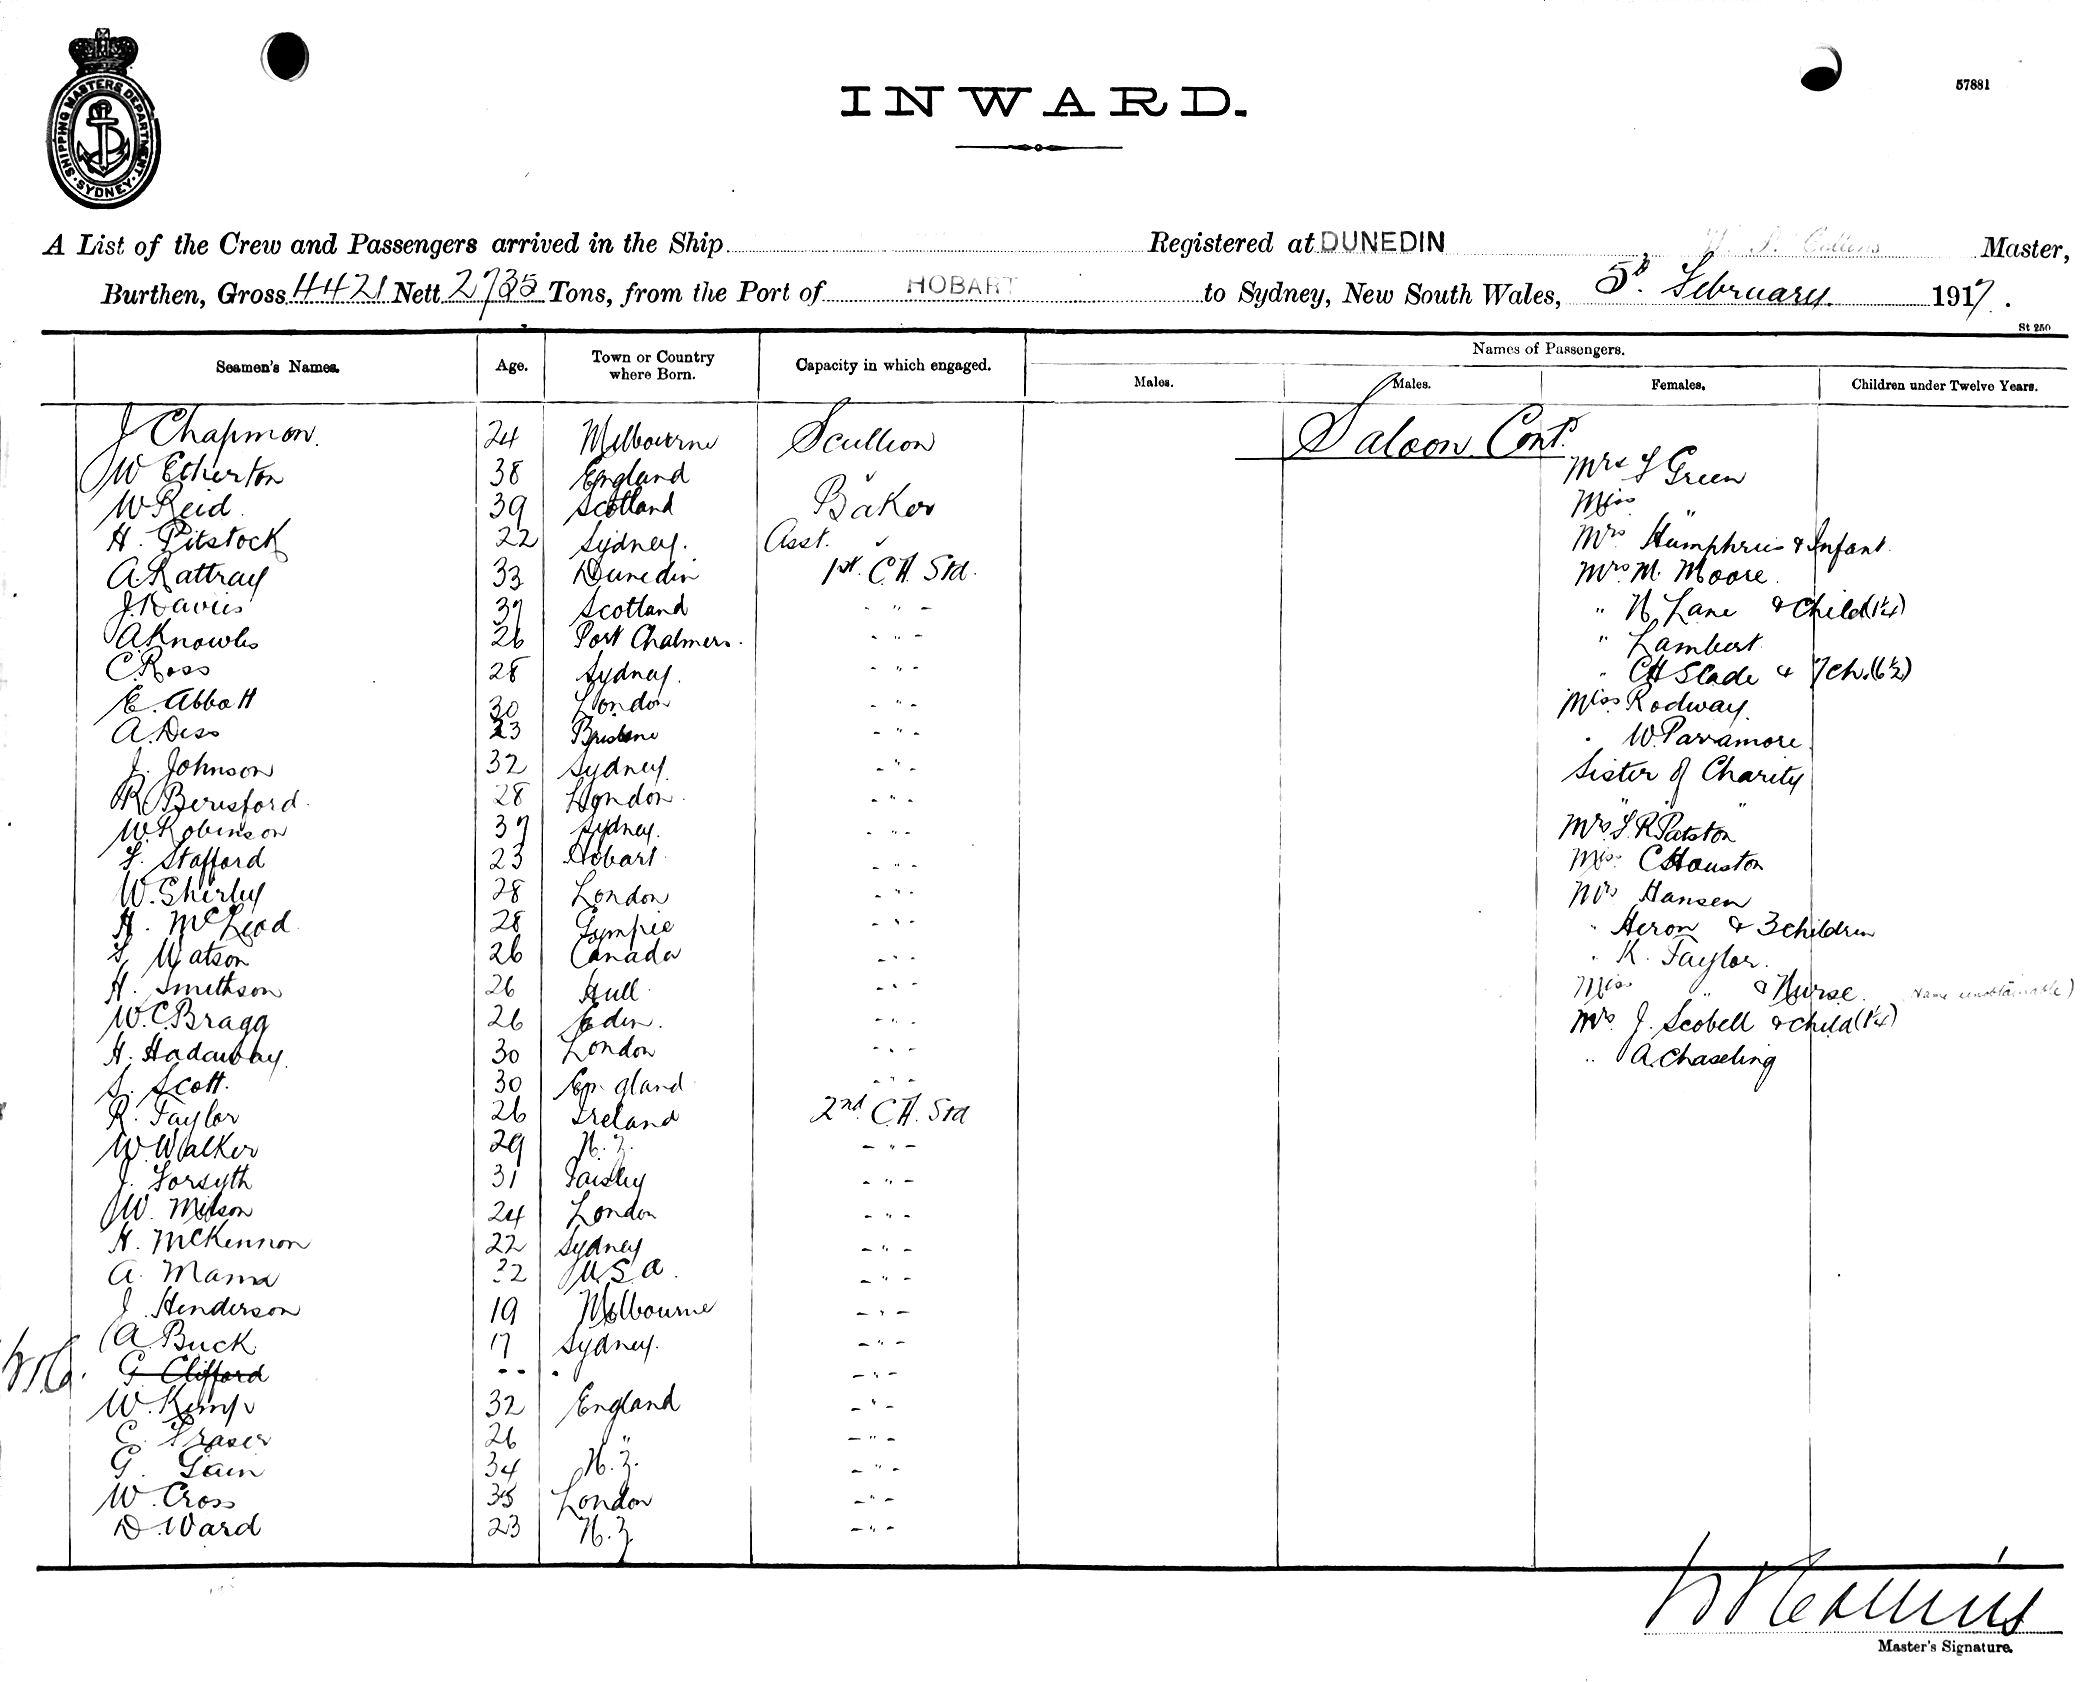 SHIPPING MASTERS DEPARTMENT · SYDNEY ·
57881
INWARD.
A List of the Crew and Passengers arrived in the Ship Registered at DUNEDIN W. P. Collins Master,
Burthen, Gross 4421 Nett 2735 Tons, from the Port of HOBART to Sydney, New South Wales, 5th February 1917.
St 250
Seamen's Names. Age. Town or Country where Born. Capacity in which engaged. Names of Passengers.
Males. Males. Females. Children under Twelve Years.
Saloon Cont.
J Chapman. 24 Melbourne Scullion
W Etherton 38 England " Mrs F Green
W Reid 39 Scotland Baker Miss "
H. Pitstock 22 Sydney. Asst. " Mrs Humphries & Infant
A Rattray 33 Dunedin 1st C.H. Std. Mrs M. Moore.
J. Davies 37 Scotland - " - " N Lane & Child (1¼)
A Knowles 26 Port Chalmers. - " - " Lambert
C. Ross 28 Sydney. - " - " CH Slade & 7 Ch. (6½)
E. Abbott 30 London - " - Miss Rodway.
A. Dess 23 Brisbane - " - " W. Parramore.
J. Johnson 32 Sydney. - " - Sister of Charity
R Beresford. 28 London. - " - " "
W. Robinson 37 Sydney. - " - Mrs F. R. Patston
F. Stafford 23 Hobart - " - Miss C Houston
W. Shirley 28 London - " - Mrs Hansen
H. McLeod 28 Gympie - " - " Heron & 3 children
F. Watson 26 Canada - " - " K. Taylor.
H. Smithson 26 Hull - " - Miss " & Nurse. (Name unobtainable)
W. C. Bragg 26 Eden. - " - Mrs. J. Scobell & child (1¼)
H. Hadaway. 30 London - " - " A. Chaseling
S. Scott. 30 England - " -
R. Taylor 26 Ireland 2nd C.H. Std
W. Walker 29 N.Z. - " -
J. Forsyth 31 Paisley - " -
W. Milson 24 London - " -
H. McKennon 22 Sydney - " -
A. Mama 32 U.S.A. - " -
J. Henderson 19 Melbourne - " -
A. Buck 17 Sydney. - " -
G Clifford - - - " -
W. Kemp 32 England - " -
C. Fraser 26 " - " -
G. Gain 34 N.Z. - " -
W. Cross 35 London - " -
D. Ward 23 N.Z - " -
W P Collins
Master's Signature.